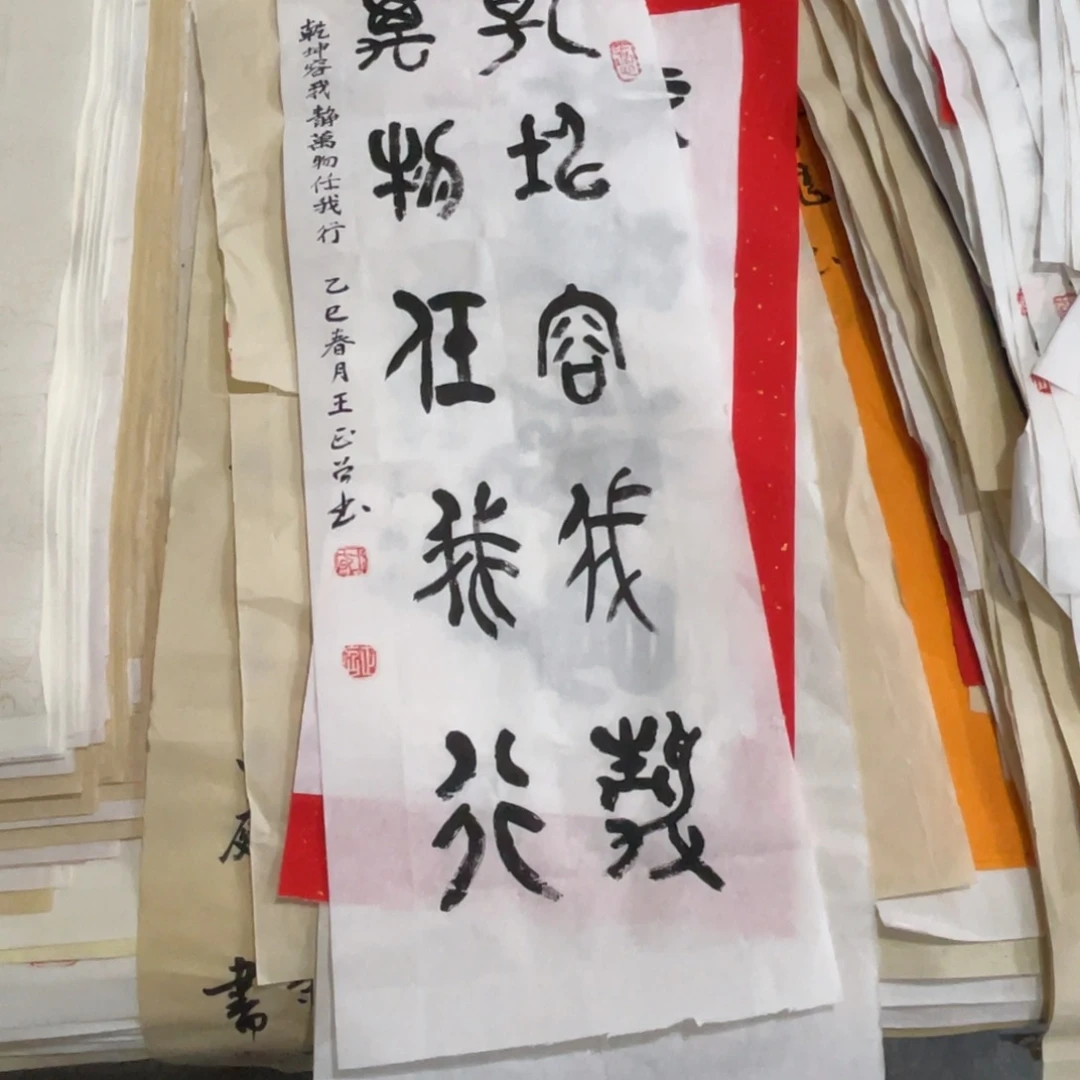 乾坤容我静
萬物任我行
乾坤容我静萬物任我行 乙巳春月王正书
書